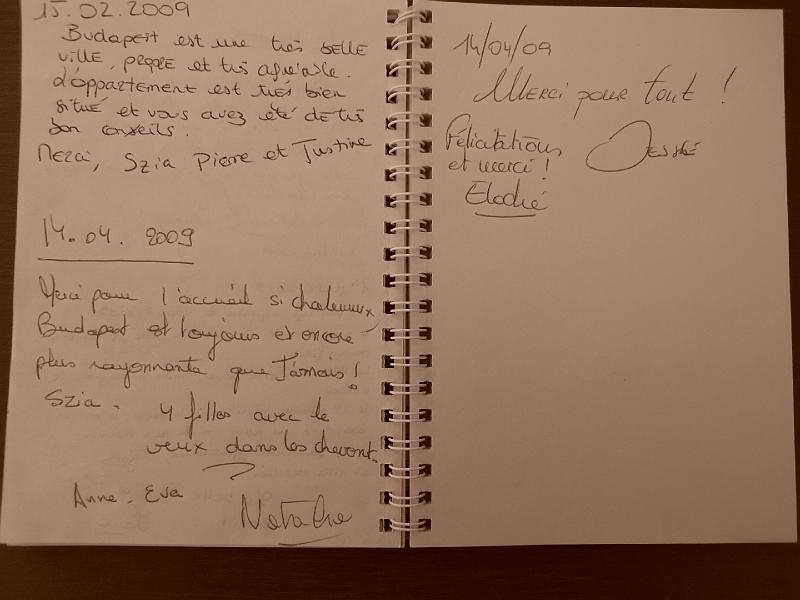 15.02.2009
Budapest est une très belle
ville, propre et très agréable.
L'appartement est très bien
situé et vous avez été de très
bon conseils.
Merci, Szia Pierre et Justine
14.04.2009
Merci pour l'accueil si chaleureux,
Budapest est toujours et encore
plus rayonnante que Jamais!
Szia. 4 filles avec le
veux dans les chevont.
Anne. Eva
Natacha
14/04/09
Merci pour tout !
Félicitations
et merci !
Elodie